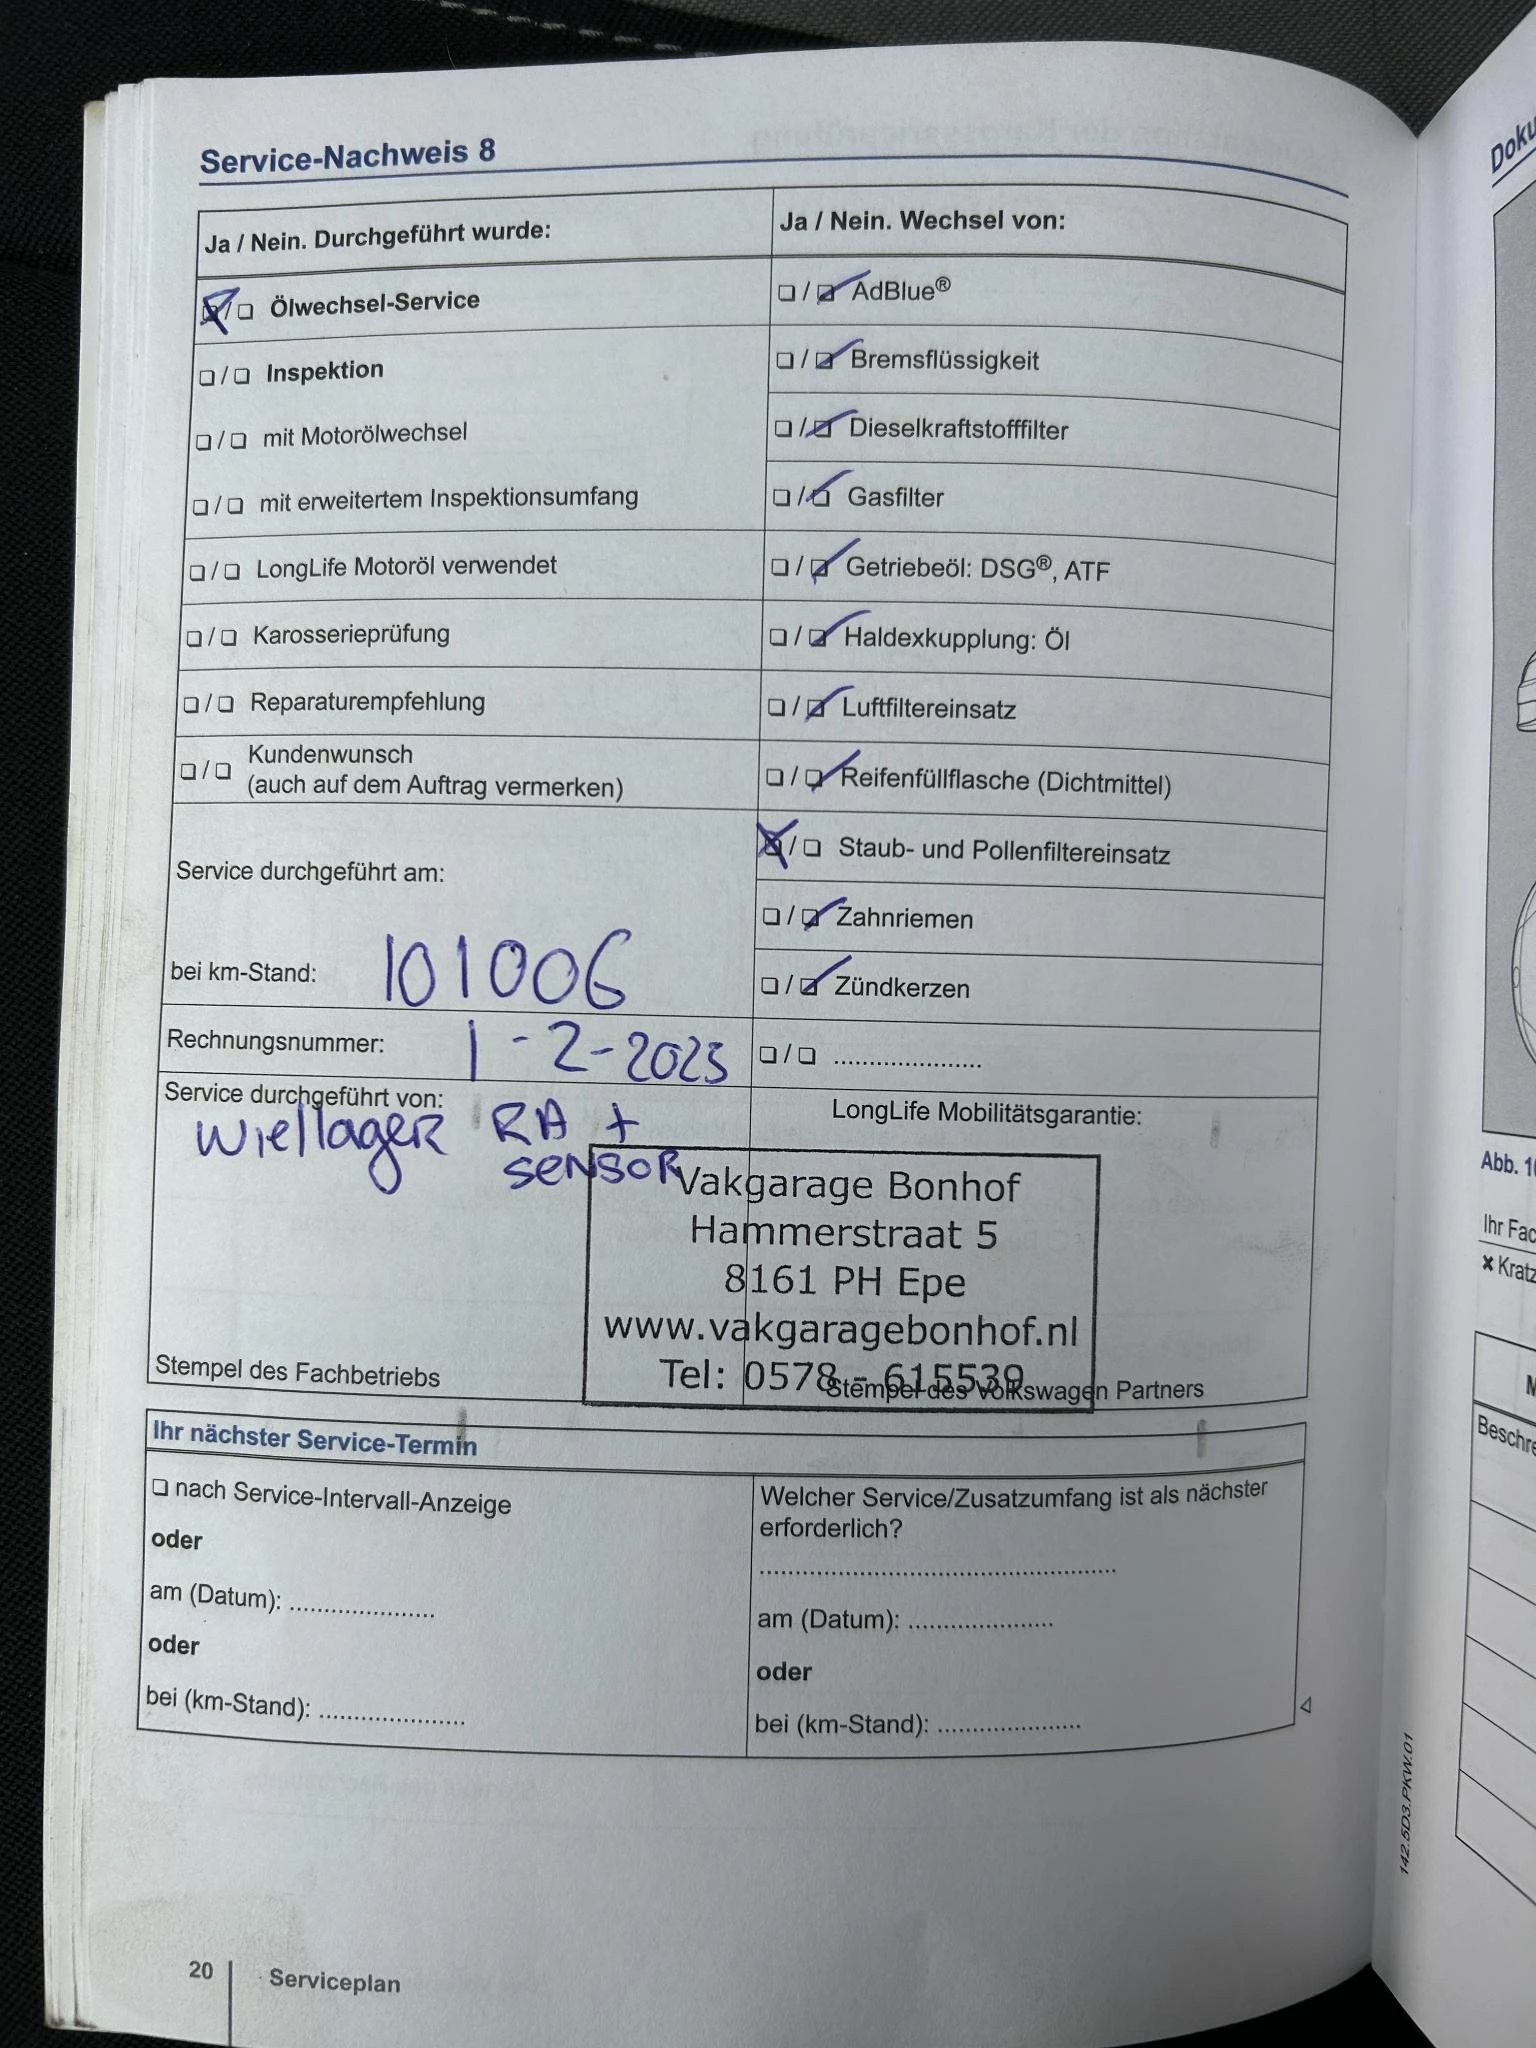 Service-Nachweis 8
Ja / Nein. Durchgeführt wurde:
❏/❏ Ölwechsel-Service
❏/❏ Inspektion
❏/❏ mit Motorölwechsel
❏/❏ mit erweitertem Inspektionsumfang
❏/❏ LongLife Motoröl verwendet
❏/❏ Karosserieprüfung
❏/❏ Reparaturempfehlung
❏/❏ Kundenwunsch
(auch auf dem Auftrag vermerken)
Service durchgeführt am:
bei km-Stand: 101006
Rechnungsnummer: 1-2-2023
Service durchgeführt von:
Wiellager RA +
sensor
Stempel des Fachbetriebs
Ja / Nein. Wechsel von:
❏/❏ AdBlue®
❏/❏ Bremsflüssigkeit
❏/❏ Dieselkraftstofffilter
❏/❏ Gasfilter
❏/❏ Getriebeöl: DSG®, ATF
❏/❏ Haldexkupplung: Öl
❏/❏ Luftfiltereinsatz
❏/❏ Reifenfüllflasche (Dichtmittel)
❏/❏ Staub- und Pollenfiltereinsatz
❏/❏ Zahnriemen
❏/❏ Zündkerzen
❏/❏ .....................
LongLife Mobilitätsgarantie:
Vakgarage Bonhof
Hammerstraat 5
8161 PH Epe
www.vakgaragebonhof.nl
Tel: 0578 - 615539
Stempel des Volkswagen Partners
Ihr nächster Service-Termin
❏ nach Service-Intervall-Anzeige
oder
am (Datum): .....................
oder
bei (km-Stand): .....................
Welcher Service/Zusatzumfang ist als nächster
erforderlich?
....................................................
am (Datum): .....................
oder
bei (km-Stand): .....................
142.5D3.PKW.01
20 Serviceplan
Doku
Abb. 1
Ihr Fac
× Kratz
M
Beschre